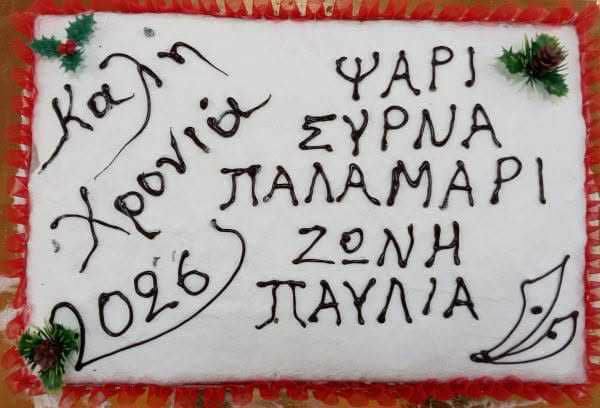 Καλη
Χρονιά
2026
ΨΑΡΙ
ΣΥΡΝΑ
ΠΑΛΑΜΑΡΙ
ΖΩΝΗ
ΠΑΥΛΙΑ